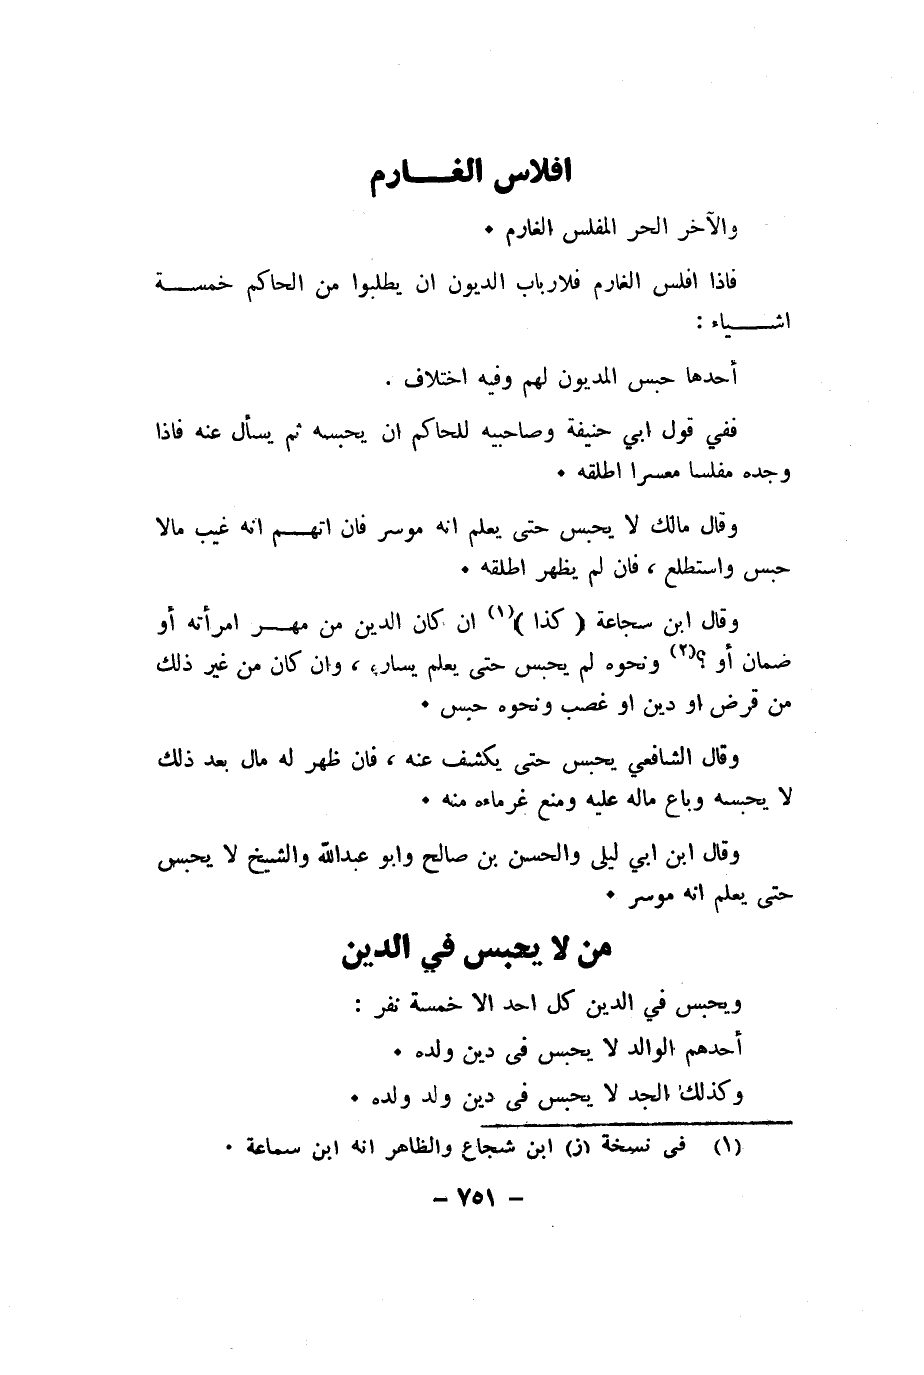 افلاس الغـــارم
والآخر الحر المفلس الغارم ٠
فاذا افلس الغارم فلارباب الديون ان يطلبوا من الحاكم خمســـة
اشـــياء :
أحدها حبس المديون لهم وفيه اختلاف .
ففي قول ابي حنيفة وصاحبيه للحاكم ان يحبسه ثم يسأل عنه فاذا
وجده مفلسا معسرا اطلقه ٠
وقال مالك لا يحبس حتى يعلم انه موسر فان اتهـــم انه غيب مالا
حبس واستطلع ، فان لم يظهر اطلقه ٠
وقال ابن سجاعة ( كذا )(١) ان كان الدين من مهـــر امرأته أو
ضمان أو ؟(٢) ونحوه لم يحبس حتى يعلم يساره ، وان كان من غير ذلك
من قرض او دين او غصب ونحوه حبس ٠
وقال الشافعي يحبس حتى يكشف عنه ، فان ظهر له مال بعد ذلك
لا يحبسه وباع ماله عليه ومنع غرماءه منه ٠
وقال ابن ابي ليلى والحسن بن صالح وابو عبدالله والشيخ لا يحبس
حتى يعلم انه موسر ٠
من لا يحبس في الدين
ويحبس في الدين كل احد الا خمسة نفر :
أحدهم الوالد لا يحبس فى دين ولده ٠
وكذلك الجد لا يحبس فى دين ولد ولده ٠
(١) فى نسخة (ز) ابن شجاع والظاهر انه ابن سماعة ٠
– ٧٥١ –